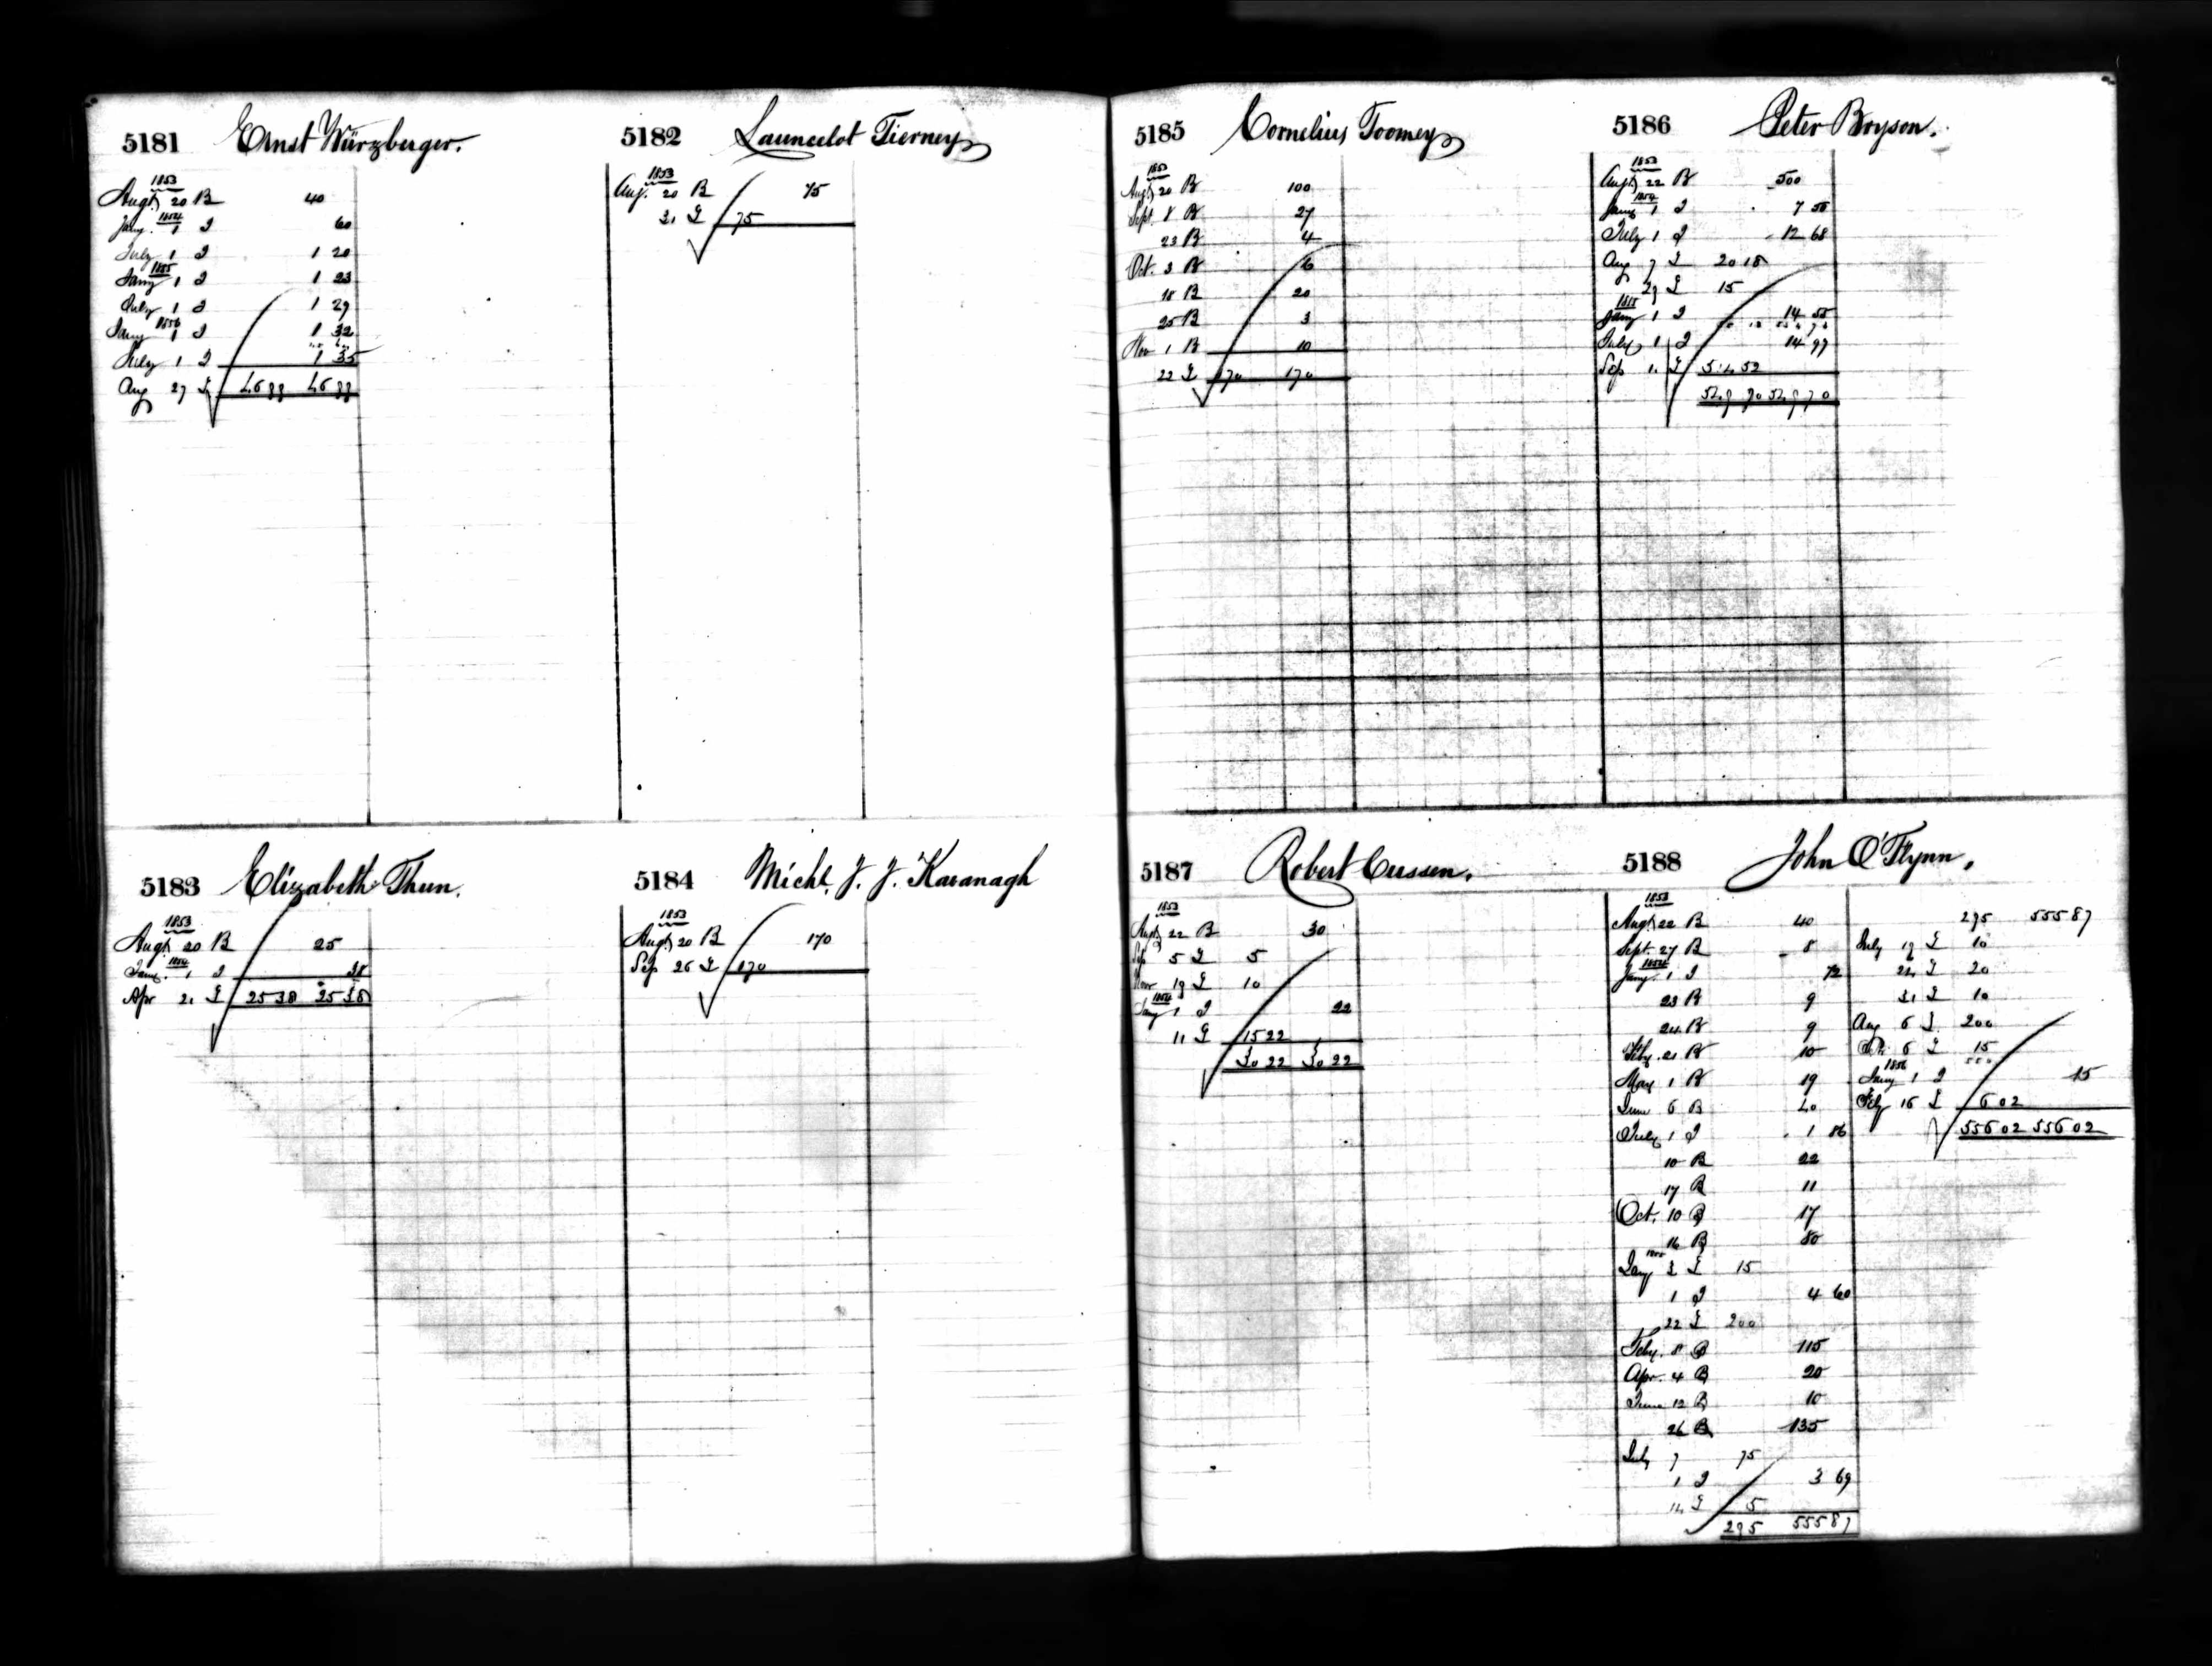 5181 Ernst Würzberger.
1853
Augt 20 B 40
1854
Jany. 1 I 60
July 1 I 1 20
1855
Jany 1 I 1 23
July 1 I 1 29
1856
Jany 1 I 1 32
July 1 I 1 35
Aug 27 L 46 99 46 99
5182 Launcelot Tierney
1853
Aug. 20 B 75
31 L 75
5183 Elizabeth Thun.
1853
Augt 20 B 25
1854
Jany. 1 I 38
Apr 21 L 25 38 25 38
5184 Michl. J. J. Kavanagh
1853
Augt 20 B 170
Sep 26 L 170
5185 Cornelius Toomey
1853
Augt 20 B 100
Sept. 8 B 27
23 B 4
Oct. 3 B 6
18 B 20
25 B 3
Nov 1 B 10
22 L 170 170
5186 Peter Bryson.
1853
Augt 22 B 500
1854
Jany 1 I 7 50
July 1 I 12 68
Aug 7 L 20 18
29 L 15
1855
Jany 1 I 14 55
July 1 I 14 97
Sep 1. L 514 52
549 70 549 70
5187 Robert Cussen.
1853
Augt 22 B 30
Sep 5 L 5
Nov 19 L 10
1854
Jany 1 I 22
11 L 15 22
30 22 30 22
5188 John O'Flynn.
1853
Augt 22 B 40
Sept. 27 B 8
1854
Jany. 1 I 72
23 B 9
24 B 9
Feby. 21 B 10
May 1 B 19
June 6 B 40
July 1 I 1 86
10 B 22
17 B 11
Oct. 10 B 17
16 B 80
1855
Jany 3 L 15
1 I 4 60
22 L 200
Feby. 8 B 115
Apr. 4 B 20
June 12 B 10
26 B 135
July 7 75
1 I 3 69
14 L 5
295 555 87
295 555 87
July 19 L 10
24 L 20
31 L 10
Aug 6 L 200
Oct. 6 L 15
1856
Jany 1 I 15
Feby 16 L 6 02
556 02 556 02